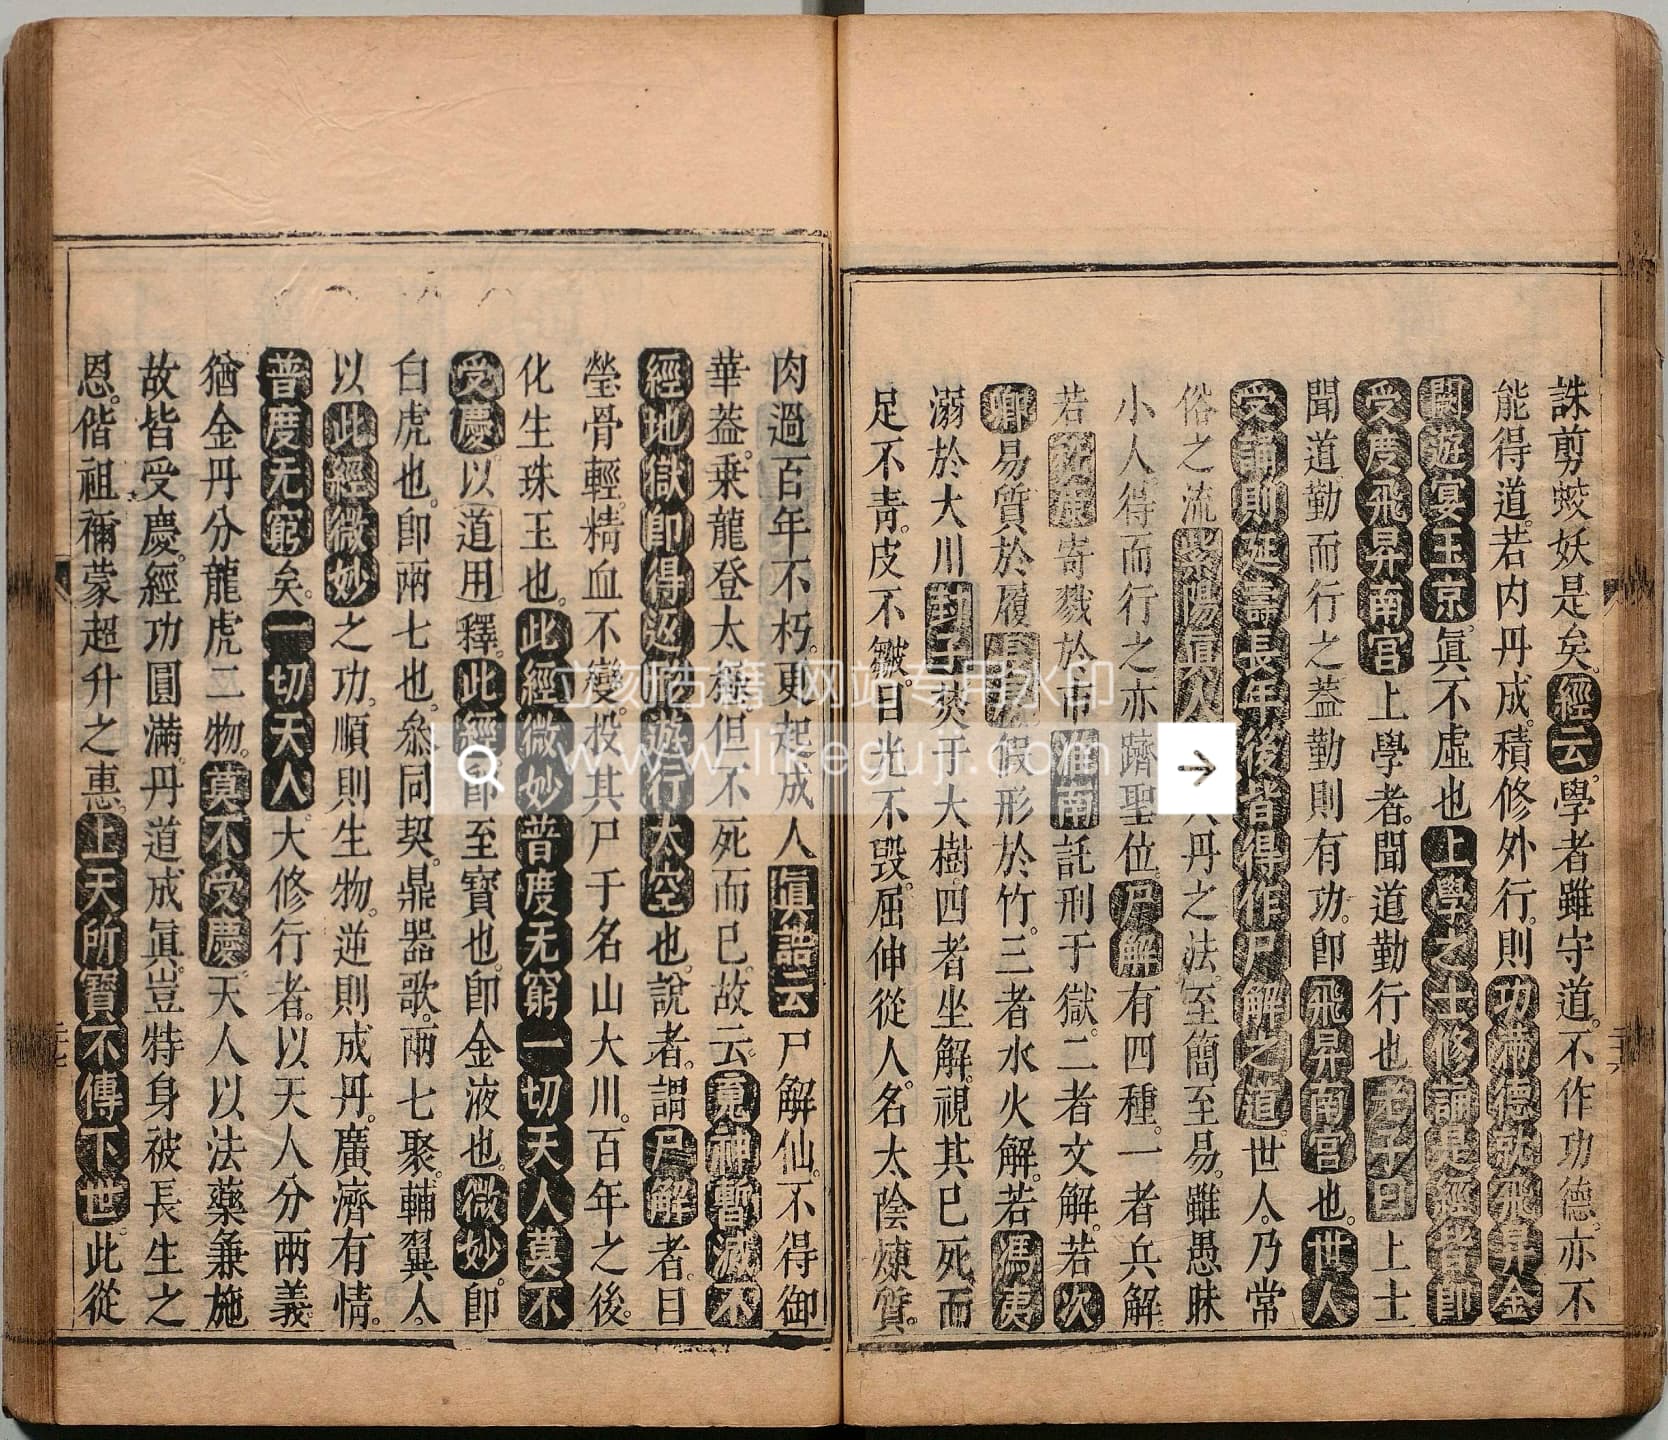 誅剪蛟妖是矣。經云。學者雖守道。不作功德。亦不
能得道。若内丹成。積修外行。則功滿德就。飛昇金
闕。遊宴玉京。眞不虛也。上學之士。修誦是經者。即
受度飛昇南宮。上學者。聞道勤行也。老子曰。上士
聞道勤而行之。蓋勤則有功。即飛昇南宮也。世人
受誦。則延壽長年。後皆得作尸解之道。世人。乃常
俗之流。紫陽眞人丹之法。至簡至易。雖愚昧
小人得而行之。亦躋聖位。尸解有四種。一者兵解。
若寄戮於市。淮南託刑于獄。二者文解。若次
卿易質於履。假形於竹。三者水火解。若馮夷
溺於大川。封子焚于大樹。四者坐解。視其已死而
足不青。皮不皺。目光不毀。屈伸從人。名太陰煉質。
肉過百年不朽。更起成人。眞誥云。尸解仙。不得御
華葢。乘龍登太極。但不死而已。故云。寬神暫滅。不
經地獄。即得返形。遊行太空也。說者。謂尸解者。日
瑩骨輕。精血不變。投其尸于名山大川。百年之後。
化生珠玉也。此經微妙。普度无窮。一切天人。莫不
受慶。以道用釋。此經即至寶也。即金液也。微妙。即
白虎也。即兩七也。叅同契。鼎器歌。兩七聚。輔翼人。
以此經微妙之功。順則生物。逆則成丹。廣濟有情。
普度无窮矣。一切天人。大修行者。以天人分兩義。
猶金丹分龍虎二物。莫不受慶。天人以法藥兼施
故皆受慶。經功圓滿。丹道成眞。豈特身被長生之
恩。偕祖禰蒙超升之惠。上天所寶。不傳下世。此從
二十七
立刻古籍 网站专用水印
www.likeguji.com